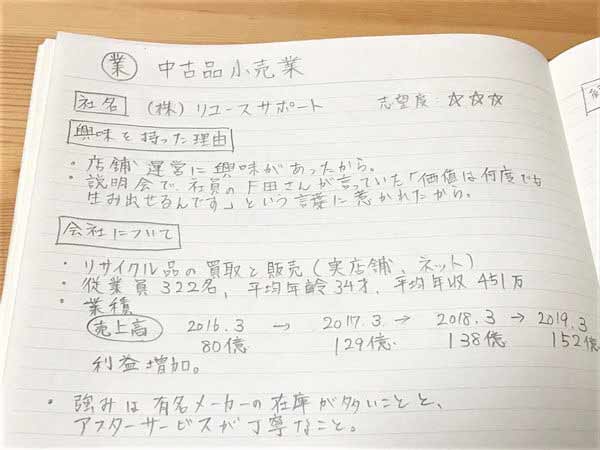 業 中古品小売業
社名 (株)リユースサポート 志望度:☆☆☆
興味を持った理由
・店舗運営に興味があったから。
・説明会で、社員の下田さんが言っていた「価値は何度でも
生み出せるんです」という言葉に惹かれたから。
会社について
・リサイクル品の買取と販売(実店舗、ネット)
・従業員322名、平均年齢34才、平均年収451万
・業績
売上高 2016.3 → 2017.3 → 2018.3 → 2019.3
80億 129億 138億 152億
利益増加。
・強みは有名メーカーの在庫が多いことと、
アフターサービスが丁寧なこと。